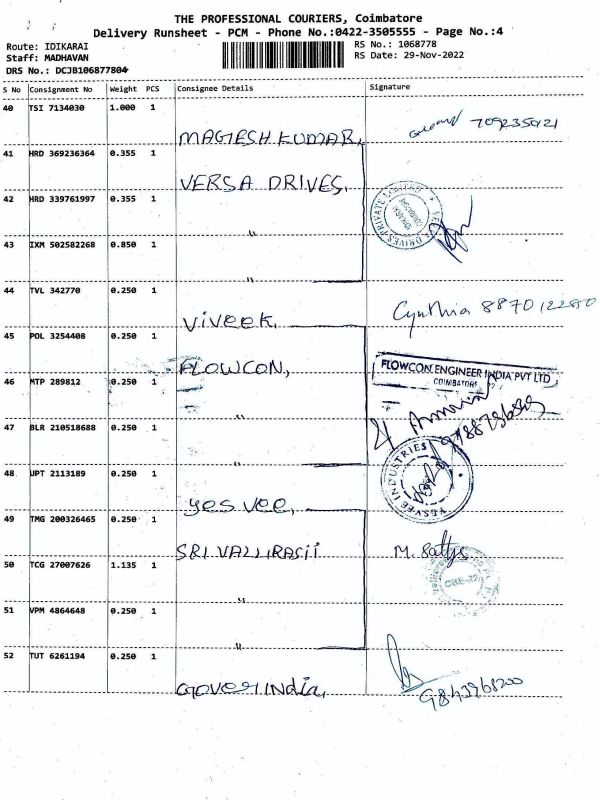 THE PROFESSIONAL COURIERS, Coimbatore
Delivery Runsheet - PCM - Phone No.:0422-3505555 - Page No.:4
Route: IDIKARAI RS No.: 1068778
Staff: MADHAVAN RS Date: 29-Nov-2022
DRS No.: DCJB106877804
S No Consignment No Weight PCS Consignee Details Signature
40 TSI 7134030 1.000 1
MAGESH KUMAR,
41 HRD 369236364 0.355 1
VERSA DRIVES,
42 HRD 339761997 0.355 1
"
43 IXM 502582268 0.850 1
"
44 TVL 342770 0.250 1 Cynthia
Viveek,
45 POL 3254408 0.250 1
FLOWCON,
FLOWCON ENGINEER INDIA PVT LTD
COIMBATORE
46 MTP 289812 0.250 1
"
47 BLR 210518688 0.250 1
"
48 UPT 2113189 0.250 1
YESVEE INDUSTRIES
yes vee,
49 TMG 200326465 0.250 1
SRI VALLI RASII M.
50 TCG 27007626 1.135 1
"
51 VPM 4864648 0.250 1
"
52 TUT 6261194 0.250 1
India,
9843968200